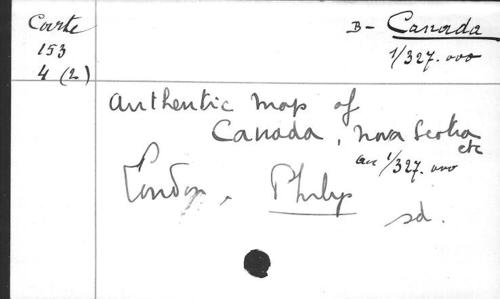 Carte
153
4 (2)
B- Canada
1/327.000
Authentic map of
Canada, Nova Scotia
etc
au 1/327.000
London, Philip
sd.